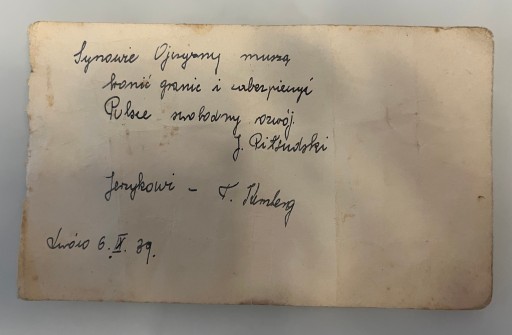 Synowie Ojczyzny muszą
bronić granic i zabezpieczyć
Polsce swobodny rozwój.
J. Piłsudski
Jerzykowi – F.
Lwów 6. IX. 39.